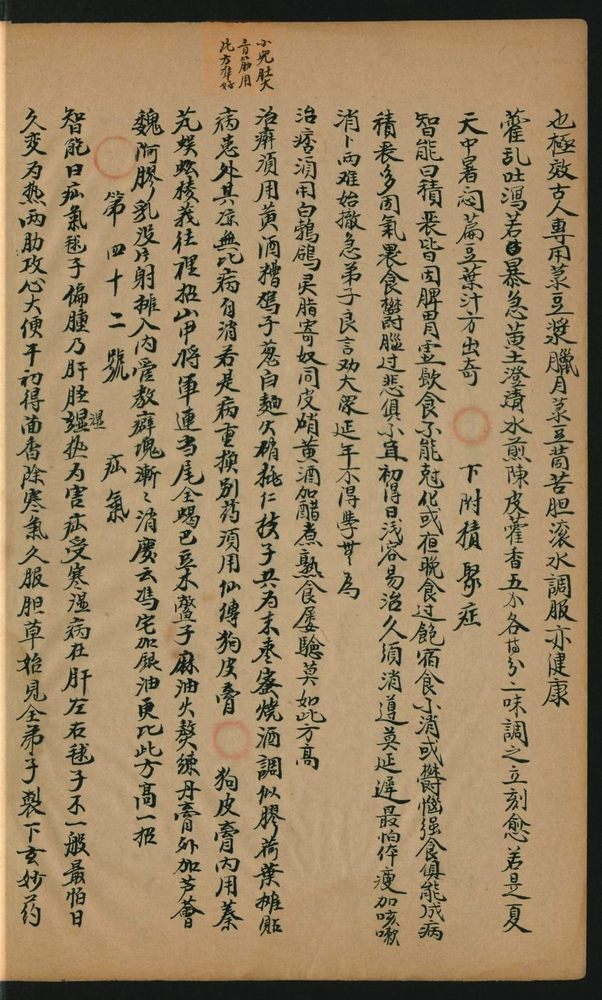 也極效古人專用菉豆漿臘月菉豆茼苦胆滚水調服亦健康
藿乱吐瀉若暴急黄土澄清水煎陳皮藿香五分各二味調之立刻愈若是夏
天中暑悶萹豆葉汁方出奇 下附積聚症
智能曰積聚皆因脾胃虚飲食不能尅化或夜晚食过飽宿食不消或欝惱强食俱能成病
積聚多因氣裹食欝腦过悲俱不宜初得日浅容易治久須消導莫延遲最怕倅瘦加咳嗽
消卜两难始撤急弟子良言劝大衆延年不得學世為
治痞須用白鵓鴿灵脂寄奴同皮硝黄酒加醋煮熟食屡驗莫如此方高
治癖須用黄酒糟鷄子葱白麵火硝桃仁枝子共为末枣蜜燒酒調似膠荷葉摊貼
病患外其凉無比病自消若是病重換别葯須用仙傳狗皮膏 狗皮膏内用蓁
艽蜈蚣稜莪往裡招山甲将軍連当尾全蝎巴豆木鱉子麻油火熬練丹膏外加芦薈
魏阿膠乳没片射摊入内愛教癖塊漸々消慶云馮宅加銀油更比此方高一招
第四十二號 疝氣
智能曰疝氣毬子偏腫乃肝經濕热为害疝受寒湿病在肝左右毬子不一般最怕日
湿
久変为热两肋攻心大便干初得茴香除寒氣久服胆草始見全弟子製下玄妙葯
小兒肚大
青筋用
此方準好